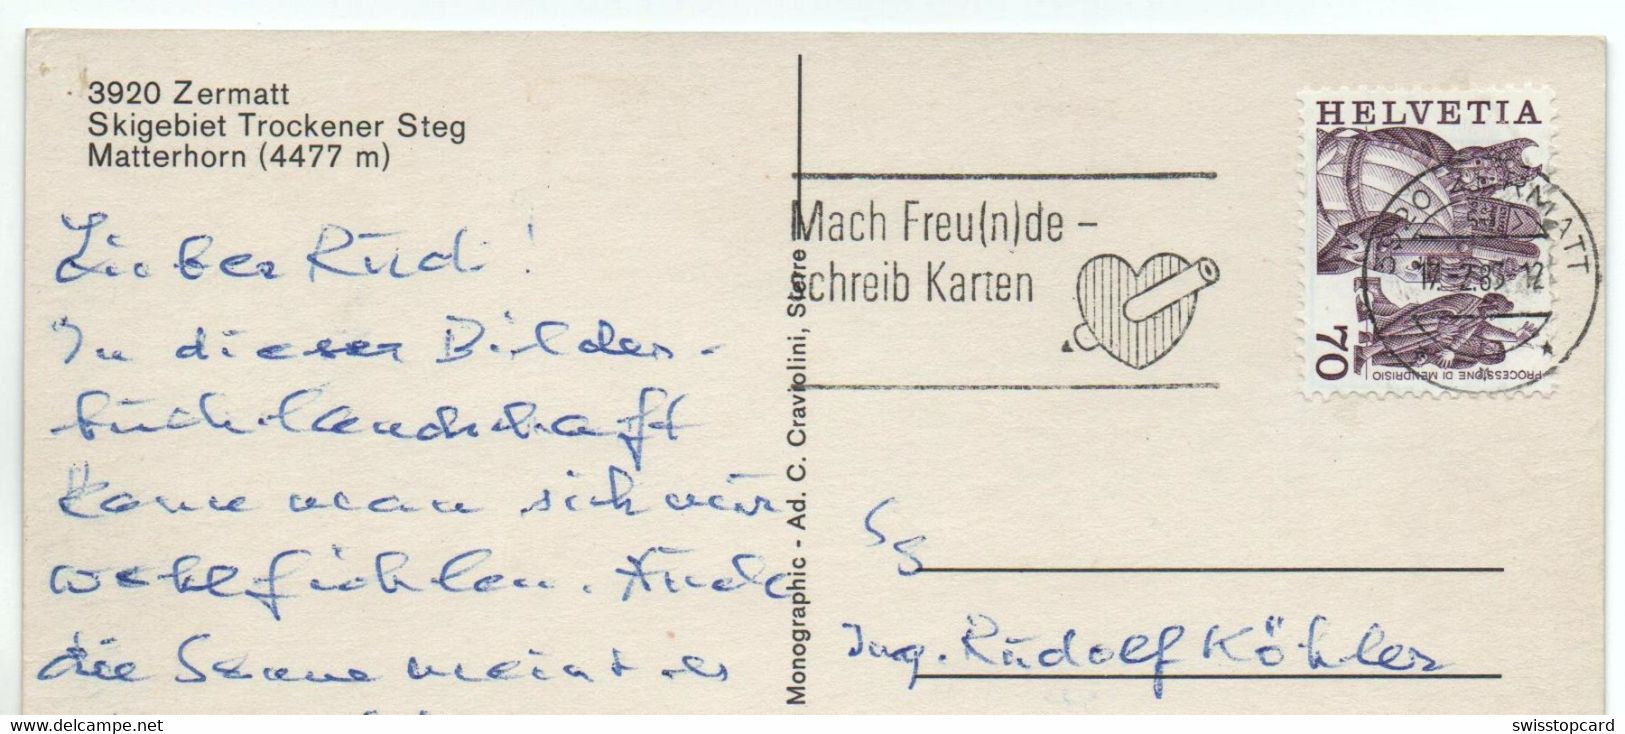 3920 Zermatt
Skigebiet Trockener Steg
Matterhorn (4477 m)
Lieber Rudi!
In dieser Bilder-
buchlandschaft
kann man sich nur
wohlfühlen. Auch
die Sonne meint es
Monographic - Ad. C. Craviolini, Sierre
Mach Freu(n)de -
schreib Karten
HELVETIA
70
PROCESSIONE DI MENDRISIO
3920 ZERMATT
Ing. Rudolf Köhler
www.delcampe.net
swisstopcard